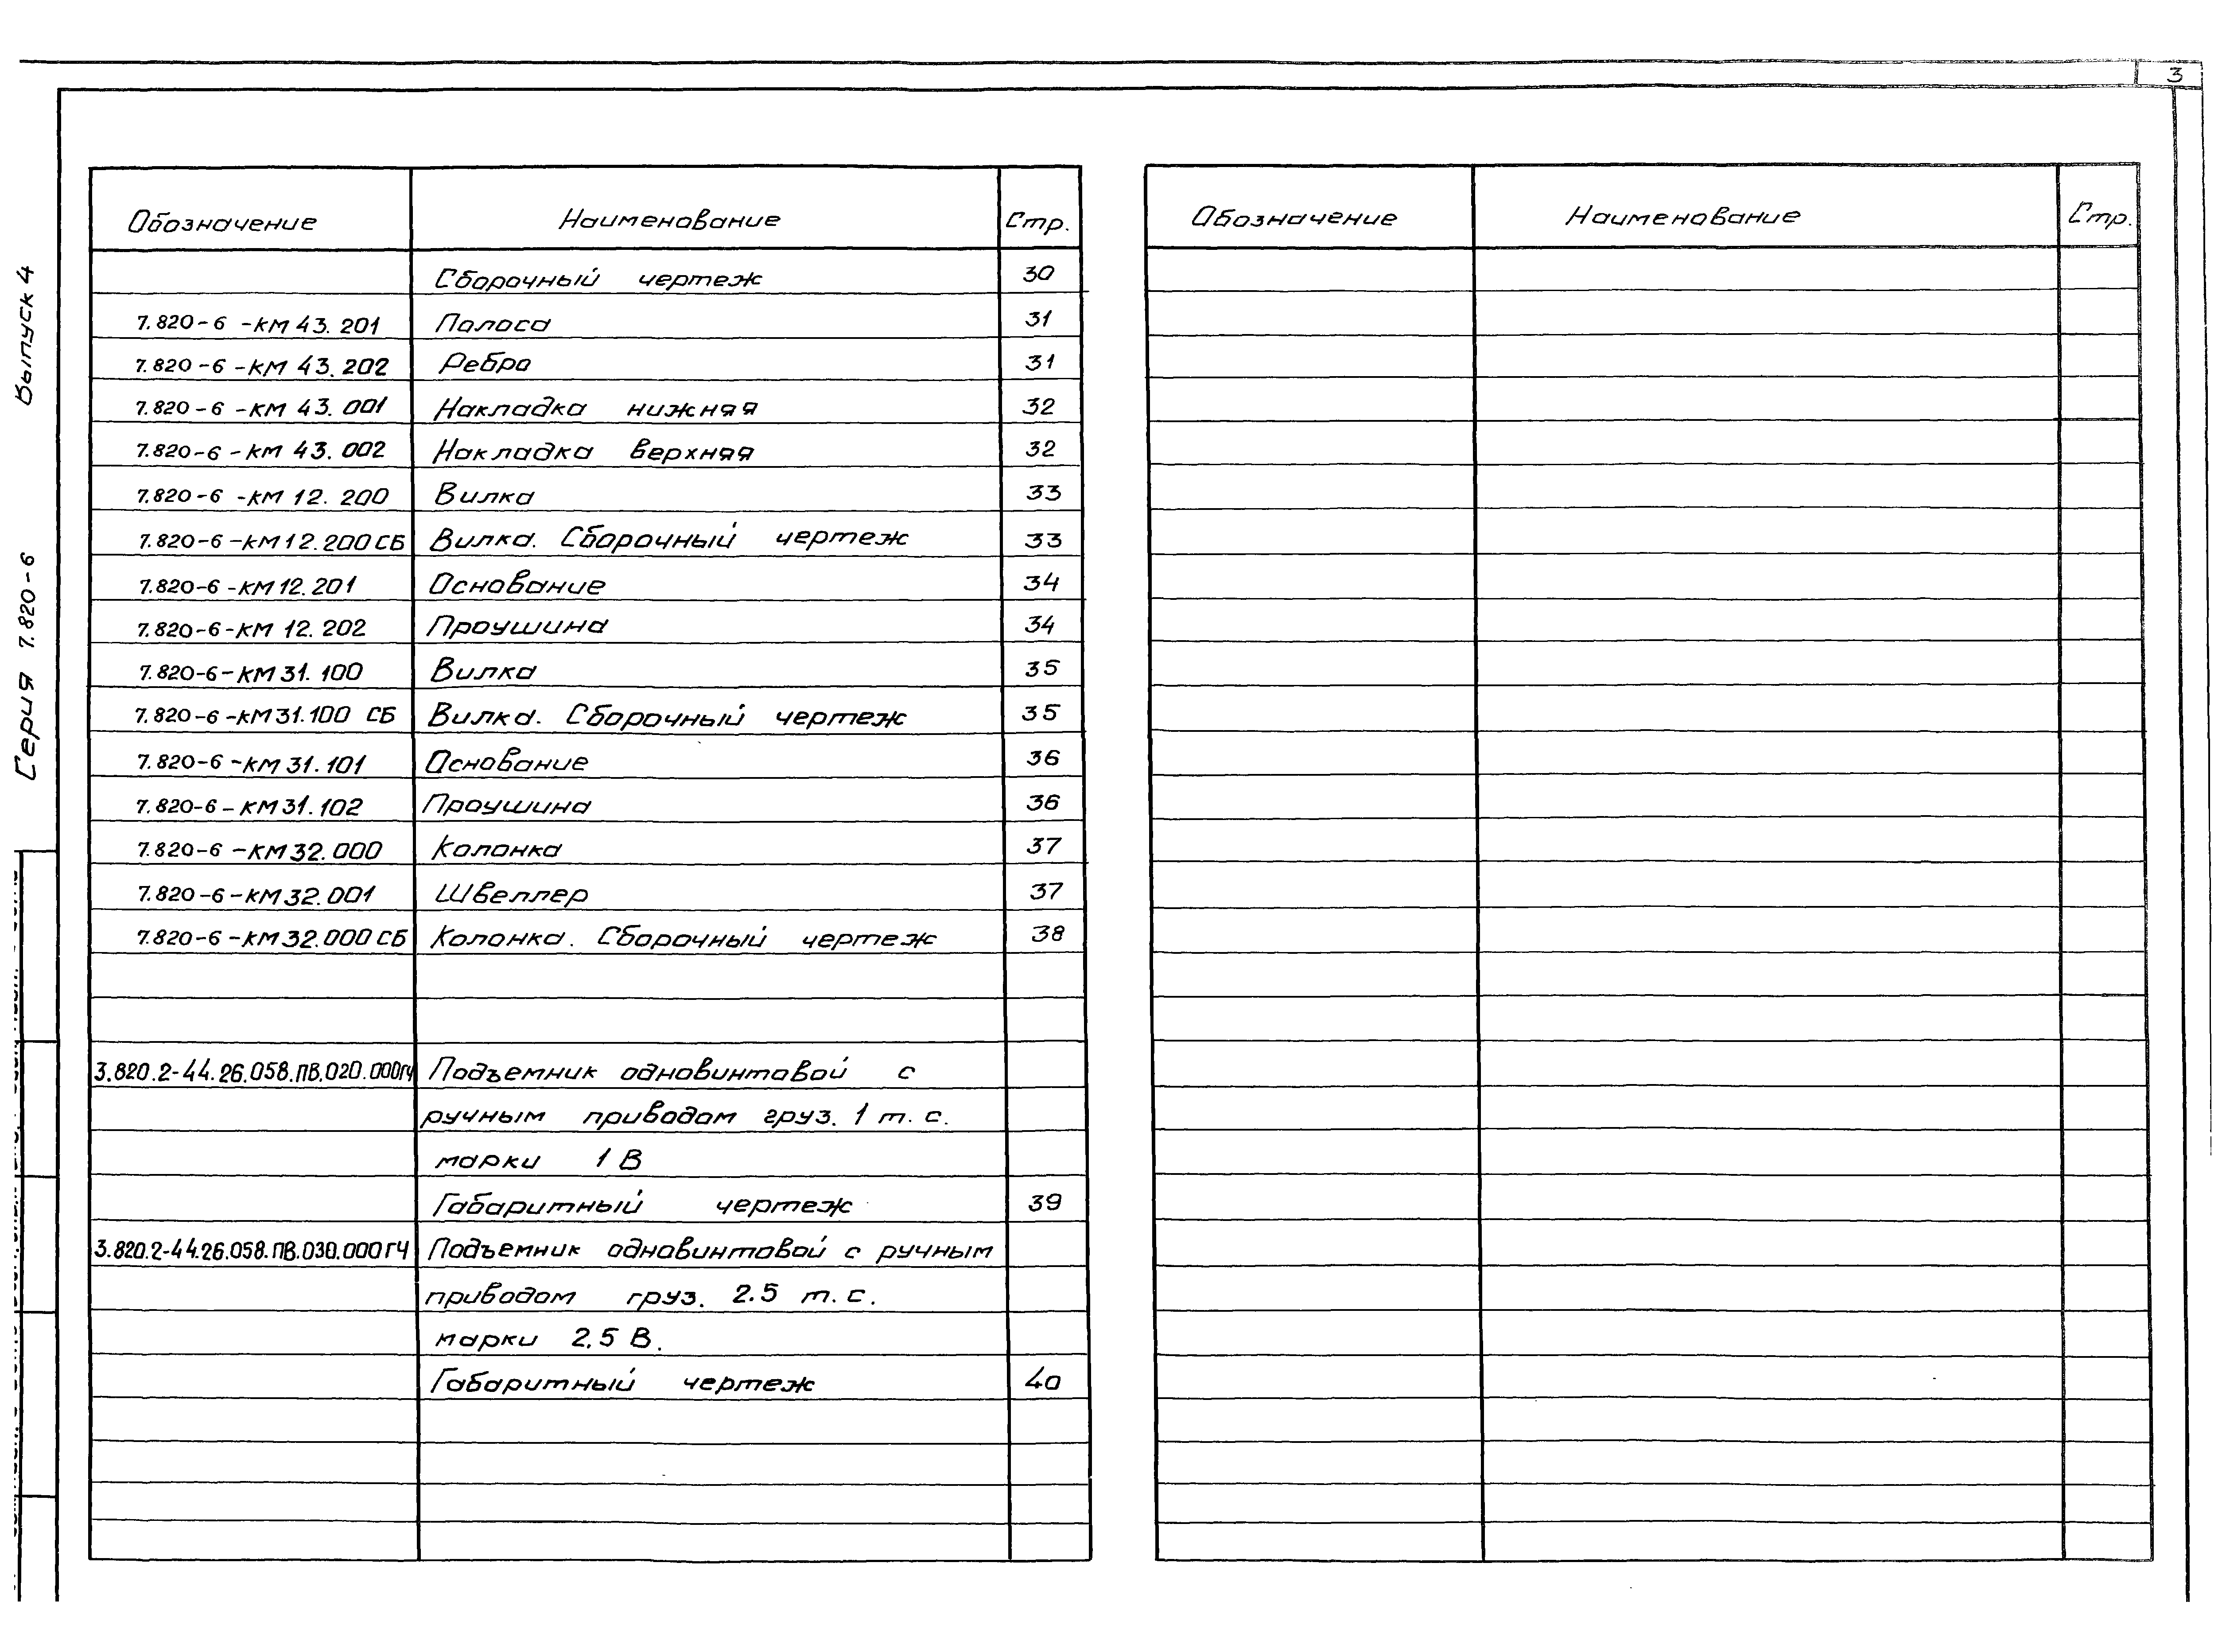 3
Выпуск 4
Серия 7.820-6
Обозначение Наименование Стр.
Сборочный чертеж 30
7.820-6-КМ 43.201 Полоса 31
7.820-6-КМ 43.202 Ребро 31
7.820-6-КМ 43.001 Накладка нижняя 32
7.820-6-КМ 43.002 Накладка верхняя 32
7.820-6-КМ 12.200 Вилка 33
7.820-6-КМ 12.200 СБ Вилка. Сборочный чертеж 33
7.820-6-КМ 12.201 Основание 34
7.820-6-КМ 12.202 Проушина 34
7.820-6-КМ 31.100 Вилка 35
7.820-6-КМ 31.100 СБ Вилка. Сборочный чертеж 35
7.820-6-КМ 31.101 Основание 36
7.820-6-КМ 31.102 Проушина 36
7.820-6-КМ 32.000 Колонка 37
7.820-6-КМ 32.001 Швеллер 37
7.820-6-КМ 32.000 СБ Колонка. Сборочный чертеж 38
3.820.2-44.26.058.ПВ.020.000ГЧ Подъемник одновинтовой с
ручным приводом груз. 1 т.с.
марки 1 В
Габаритный чертеж 39
3.820.2-44.26.058.ПВ.030.000ГЧ Подъемник одновинтовой с ручным
приводом груз. 2.5 т.с.
марки 2,5 В.
Габаритный чертеж 40
Обозначение Наименование Стр.